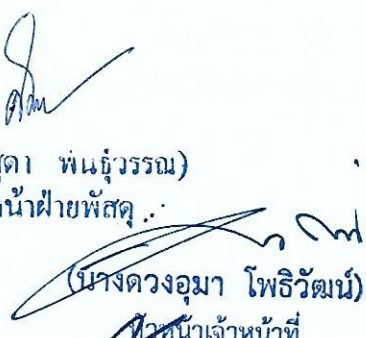 ุดา พันธุ์วรรณ)
หน้าฝ่ายพัสดุ
(นางดวงอุมา โพธิวัฒน์)
หัวหน้าเจ้าหน้าที่